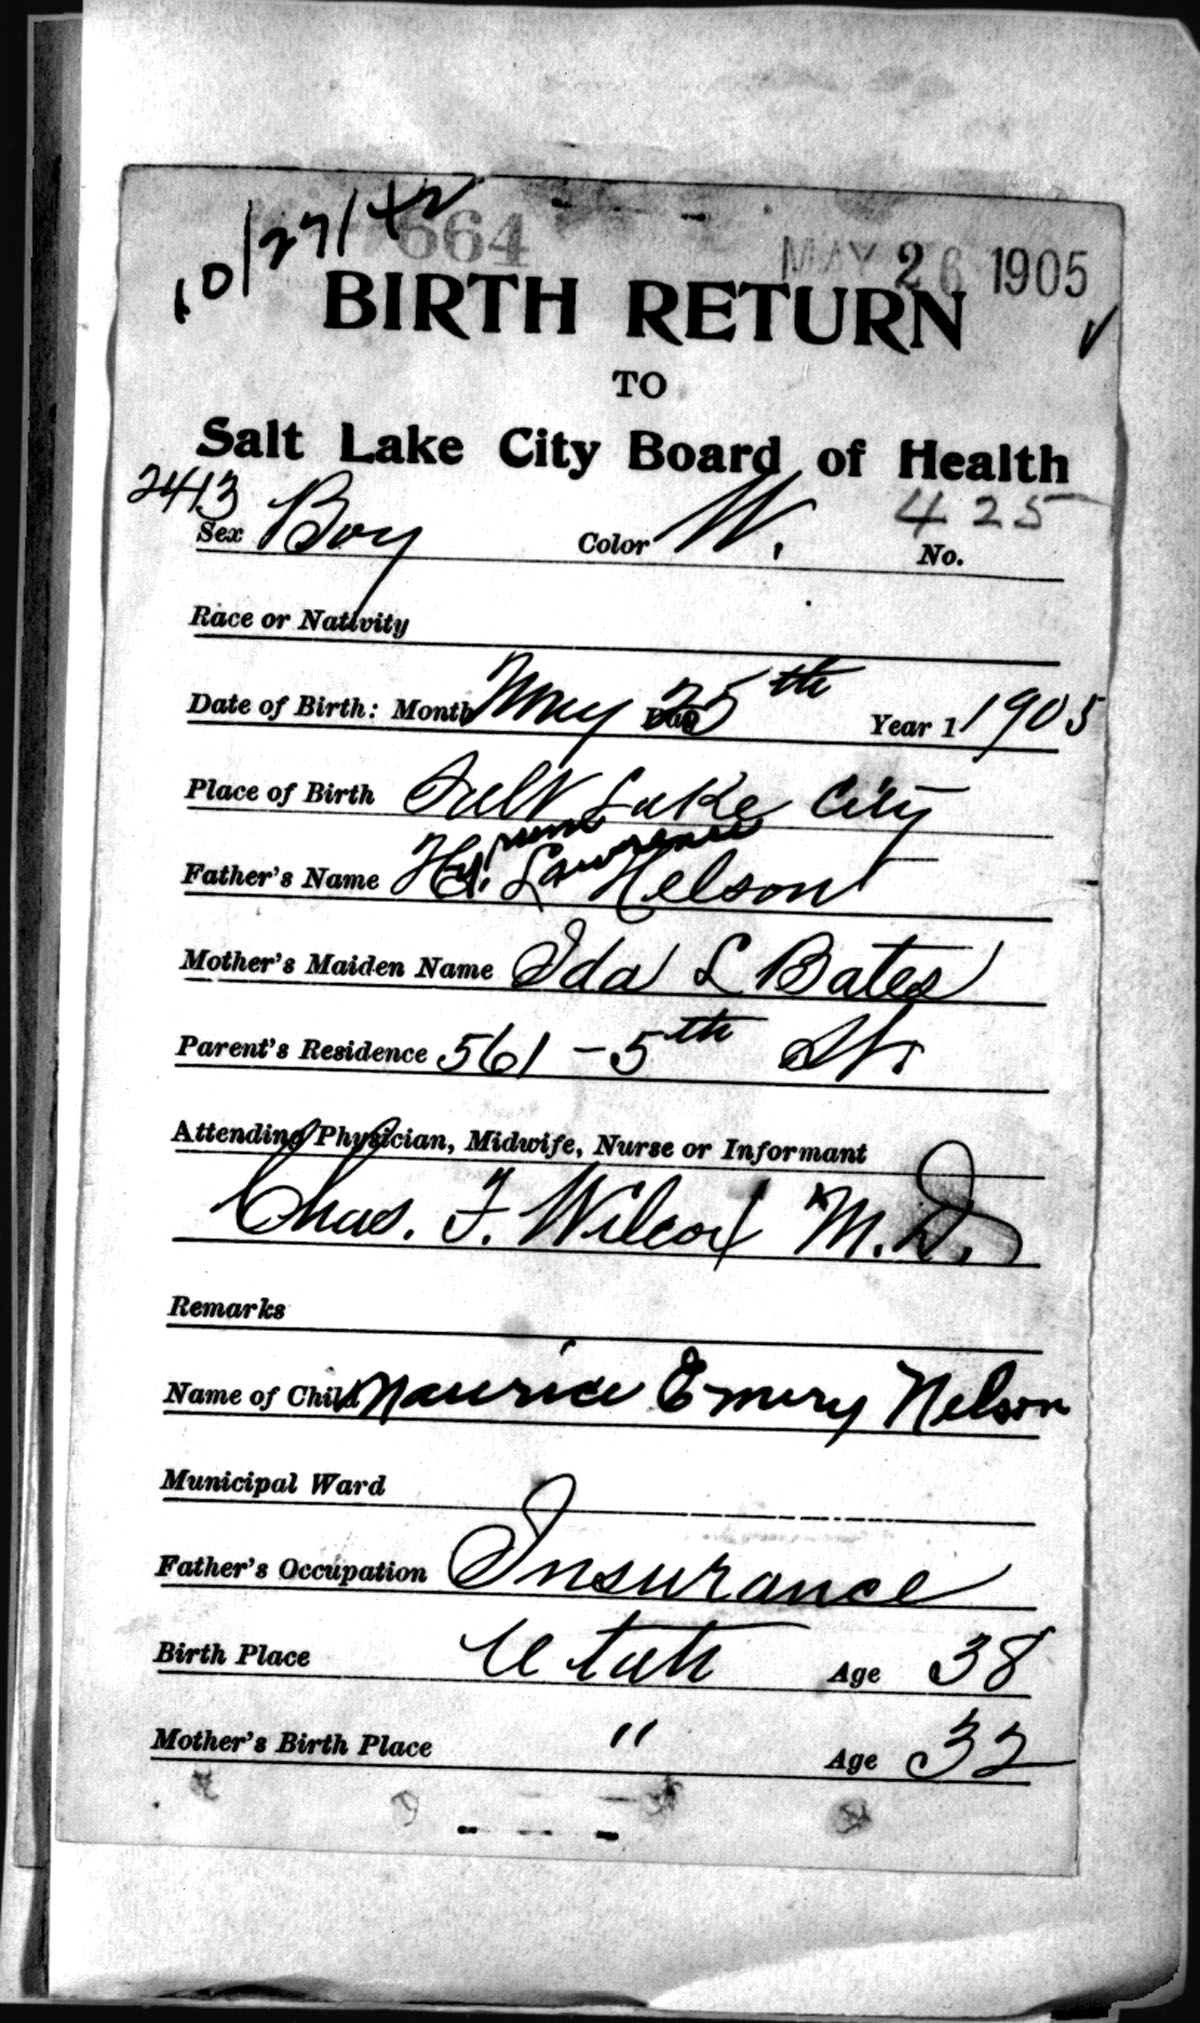 10/27/42
664
MAY 26 1905
BIRTH RETURN
TO
Salt Lake City Board of Health
2413
425
Sex Boy Color W. No.
Race or Nativity
Date of Birth: Month May Day 25th Year 1 1905
Place of Birth Salt Lake City
Father's Name Hy. Lawrence Nelson
Mother's Maiden Name Ida L Bates
Parent's Residence 561 - 5th St.
Attending Physician, Midwife, Nurse or Informant
Chas. F. Wilcox M.D.
Remarks
Name of Child Maurice Emery Nelson
Municipal Ward
Father's Occupation Insurance
Birth Place Utah Age 38
Mother's Birth Place " Age 32